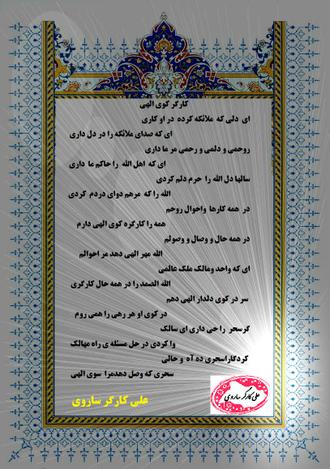 کارگر کوی الهی
ای دلی که ملائکه کرده در او کاری
ای که صدای ملائکه را در دل داری
روحمی و دلمی و رحمی مر ما داری
ای که اهل الله را حاکم ما داری
سالها دل الله را حرم دلم کردی
الله را که مرهم دوای دردم کردی
در همه کارها واحوال روحم
همه را کارگره کوی الهی دارم
در همه حال و وصال و وصولم
الله مهر الهی دهد مر احوالم
ای که واحد ومالک ملک عالمی
الله الصمد را در همه حال کارگری
سر در کوی دلدار الهی دهم
در کوی او هر رهی را همی روم
گرسحر را حی داری ای سالک
وا کردی در حل مسئله ی راه مهالک
کردگاراسحری ده آه و حالی
سحری که وصل دهدمرا سوی الهی
علی کارگر ساروی
علی کارگر ساروی